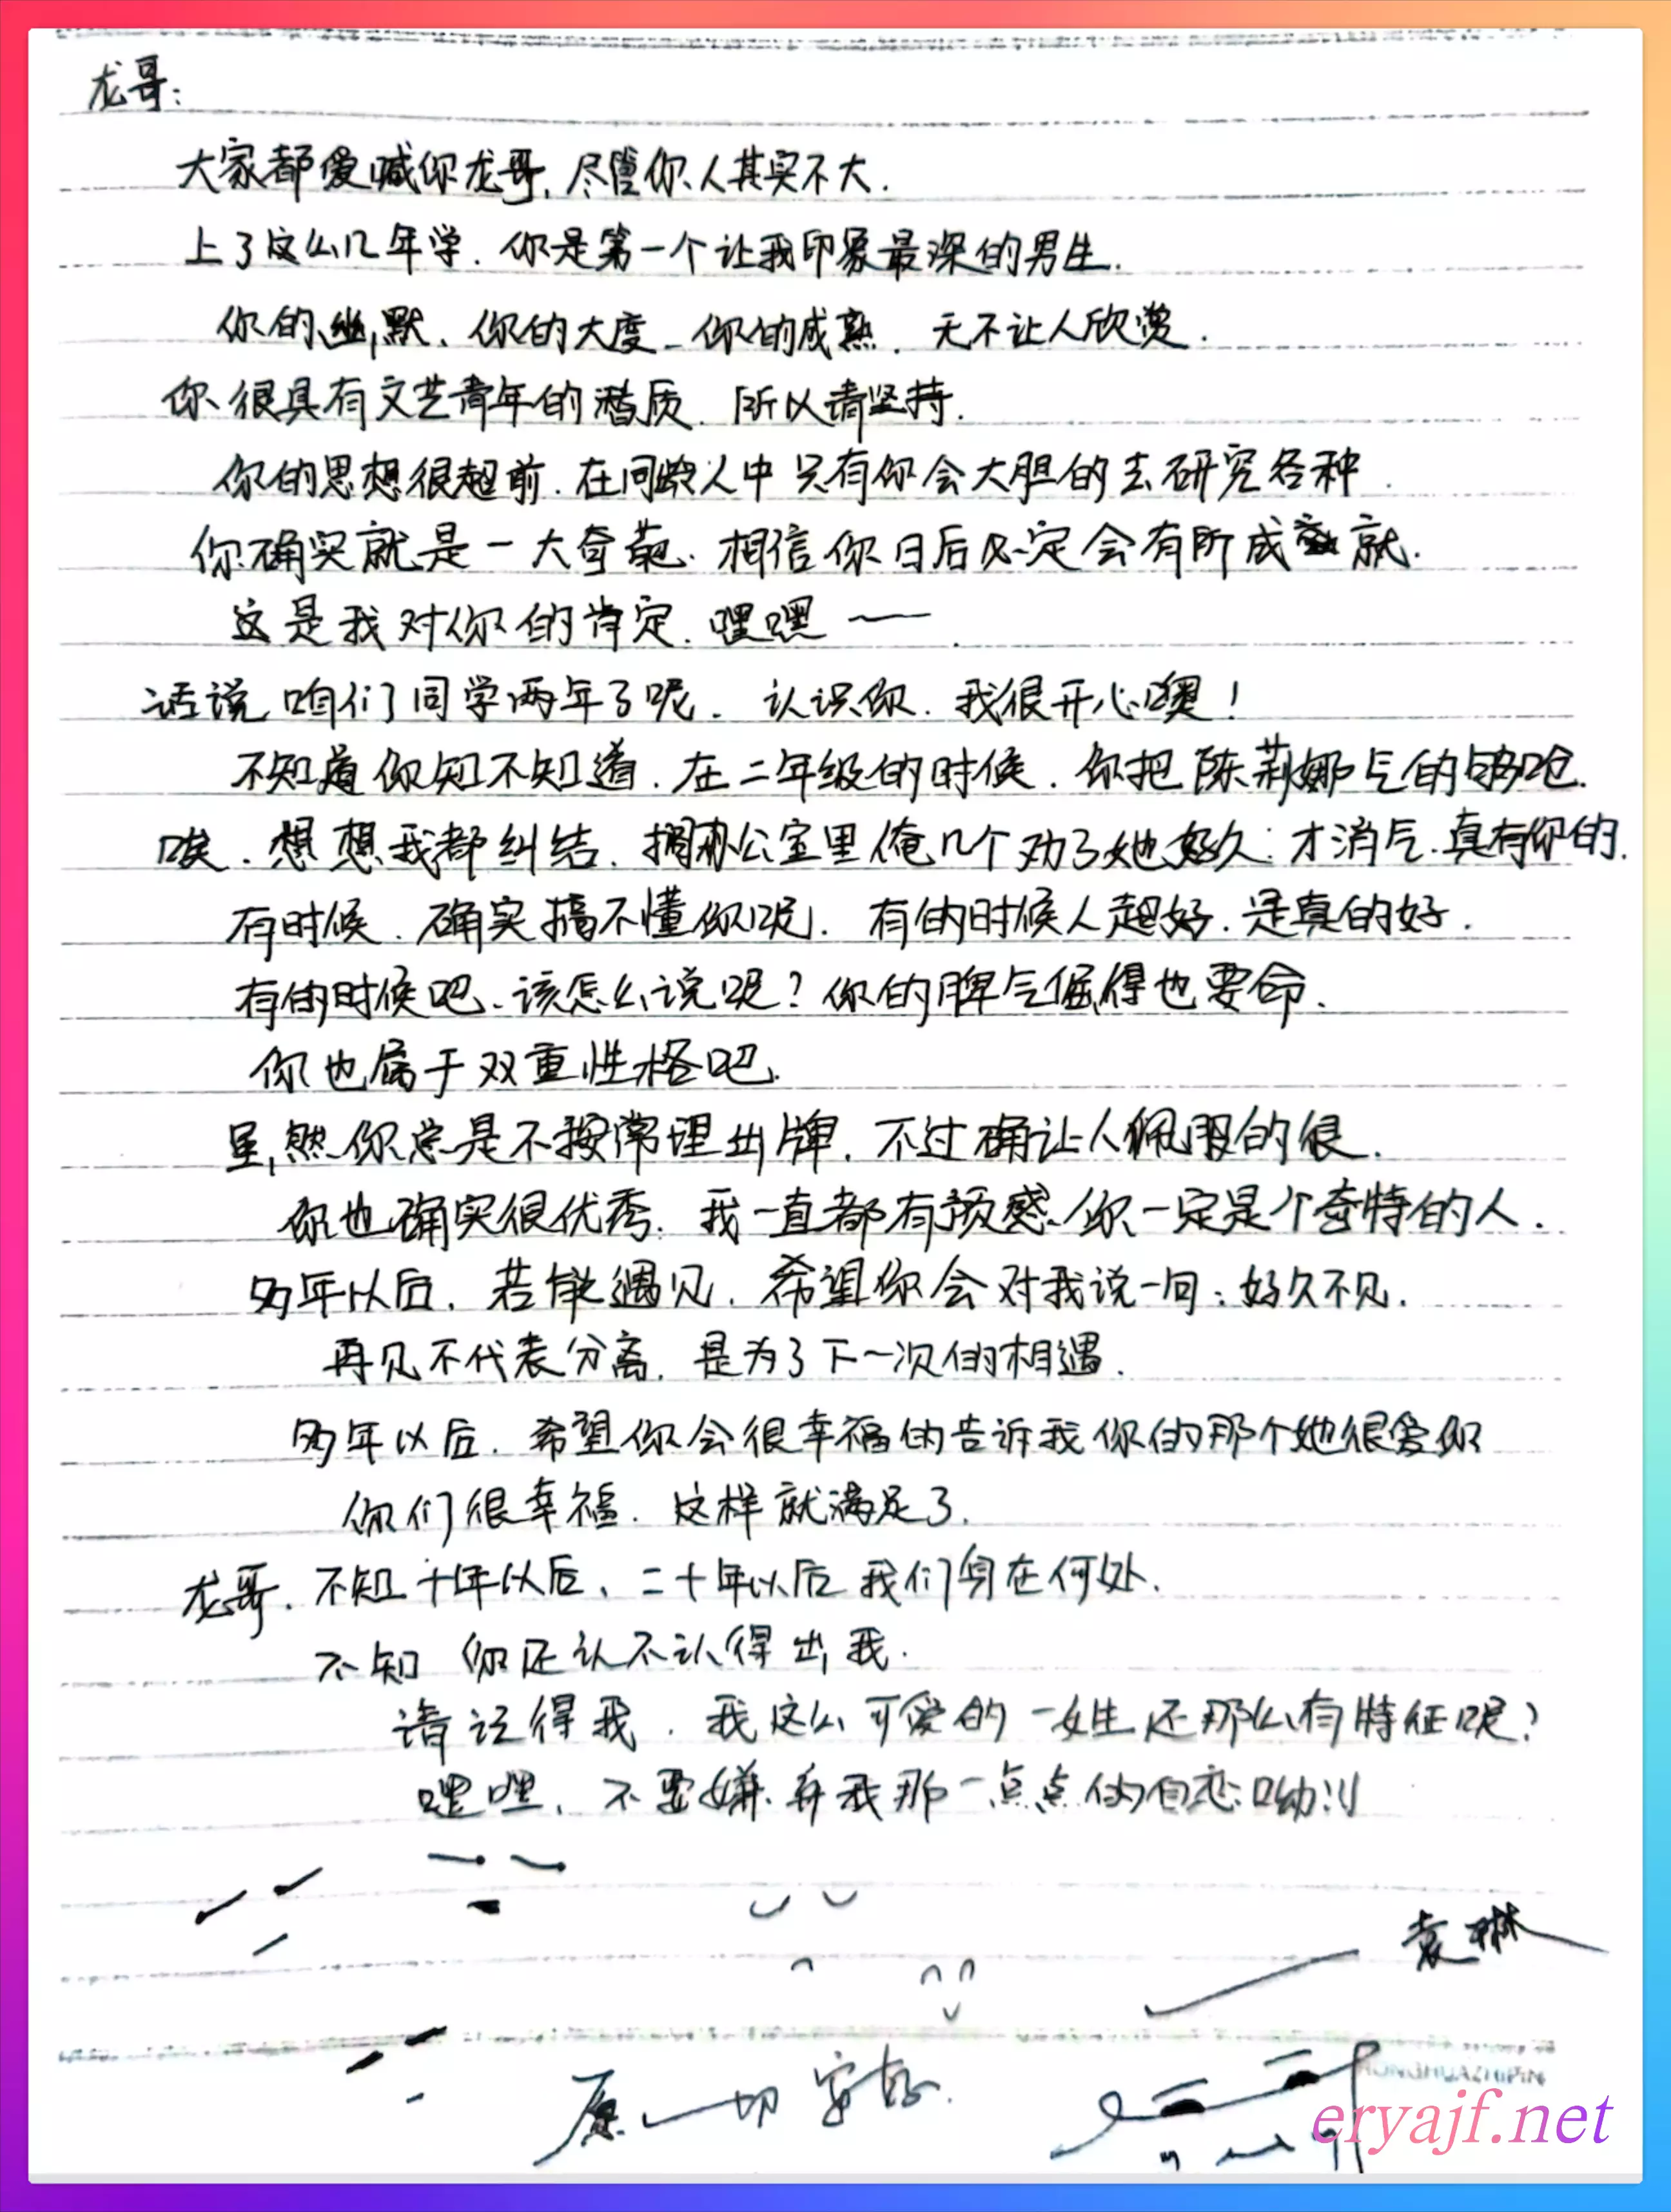 龙哥：
大家都爱喊你龙哥，尽管你人其实不大.
上了这么几年学.你是第一个让我印象最深的男生.
你的幽默、你的大度、你的成熟.无不让人欣赏.
你很具有文艺青年的潜质.所以请坚持.
你的思想很超前.在同龄人中只有你会大胆的去研究各种.
你确实就是一大奇葩.相信你日后必定会有所成就.
这是我对你的肯定.嘿嘿——
话说咱们同学两年了呢.认识你.我很开心噢！
不知道你知不知道.在二年级的时候.你把陈莉娜气的够呛.
唉.想想我都纠结.搁办公室里俺几个劝了她好久.才消气.真有你的.
有时候.确实搞不懂你呢.有的时候人超好.是真的好.
有的时候吧、该怎么说呢？你的脾气倔得也要命.
你也属于双重性格吧.
虽然你总是不按常理出牌.不过确让人佩服的很.
你也确实很优秀.我一直都有预感、你一定是个奇特的人.
多年以后.若能遇见.希望你会对我说一句：好久不见.
再见不代表分离.是为了下一次的相遇.
多年以后.希望你会很幸福的告诉我你的那个她很爱你
你们很幸福.这样就满足了.
龙哥.不知十年以后、二十年以后我们身在何处.
不知 你还认不认得出我.
请记得我.我这么可爱的一女生还那么有特征呢？
嘿嘿、不要嫌弃我那一点点的自恋呦！！
袁琳
愿一切安好.
HONGHUAZHIPIN
eryajf.net